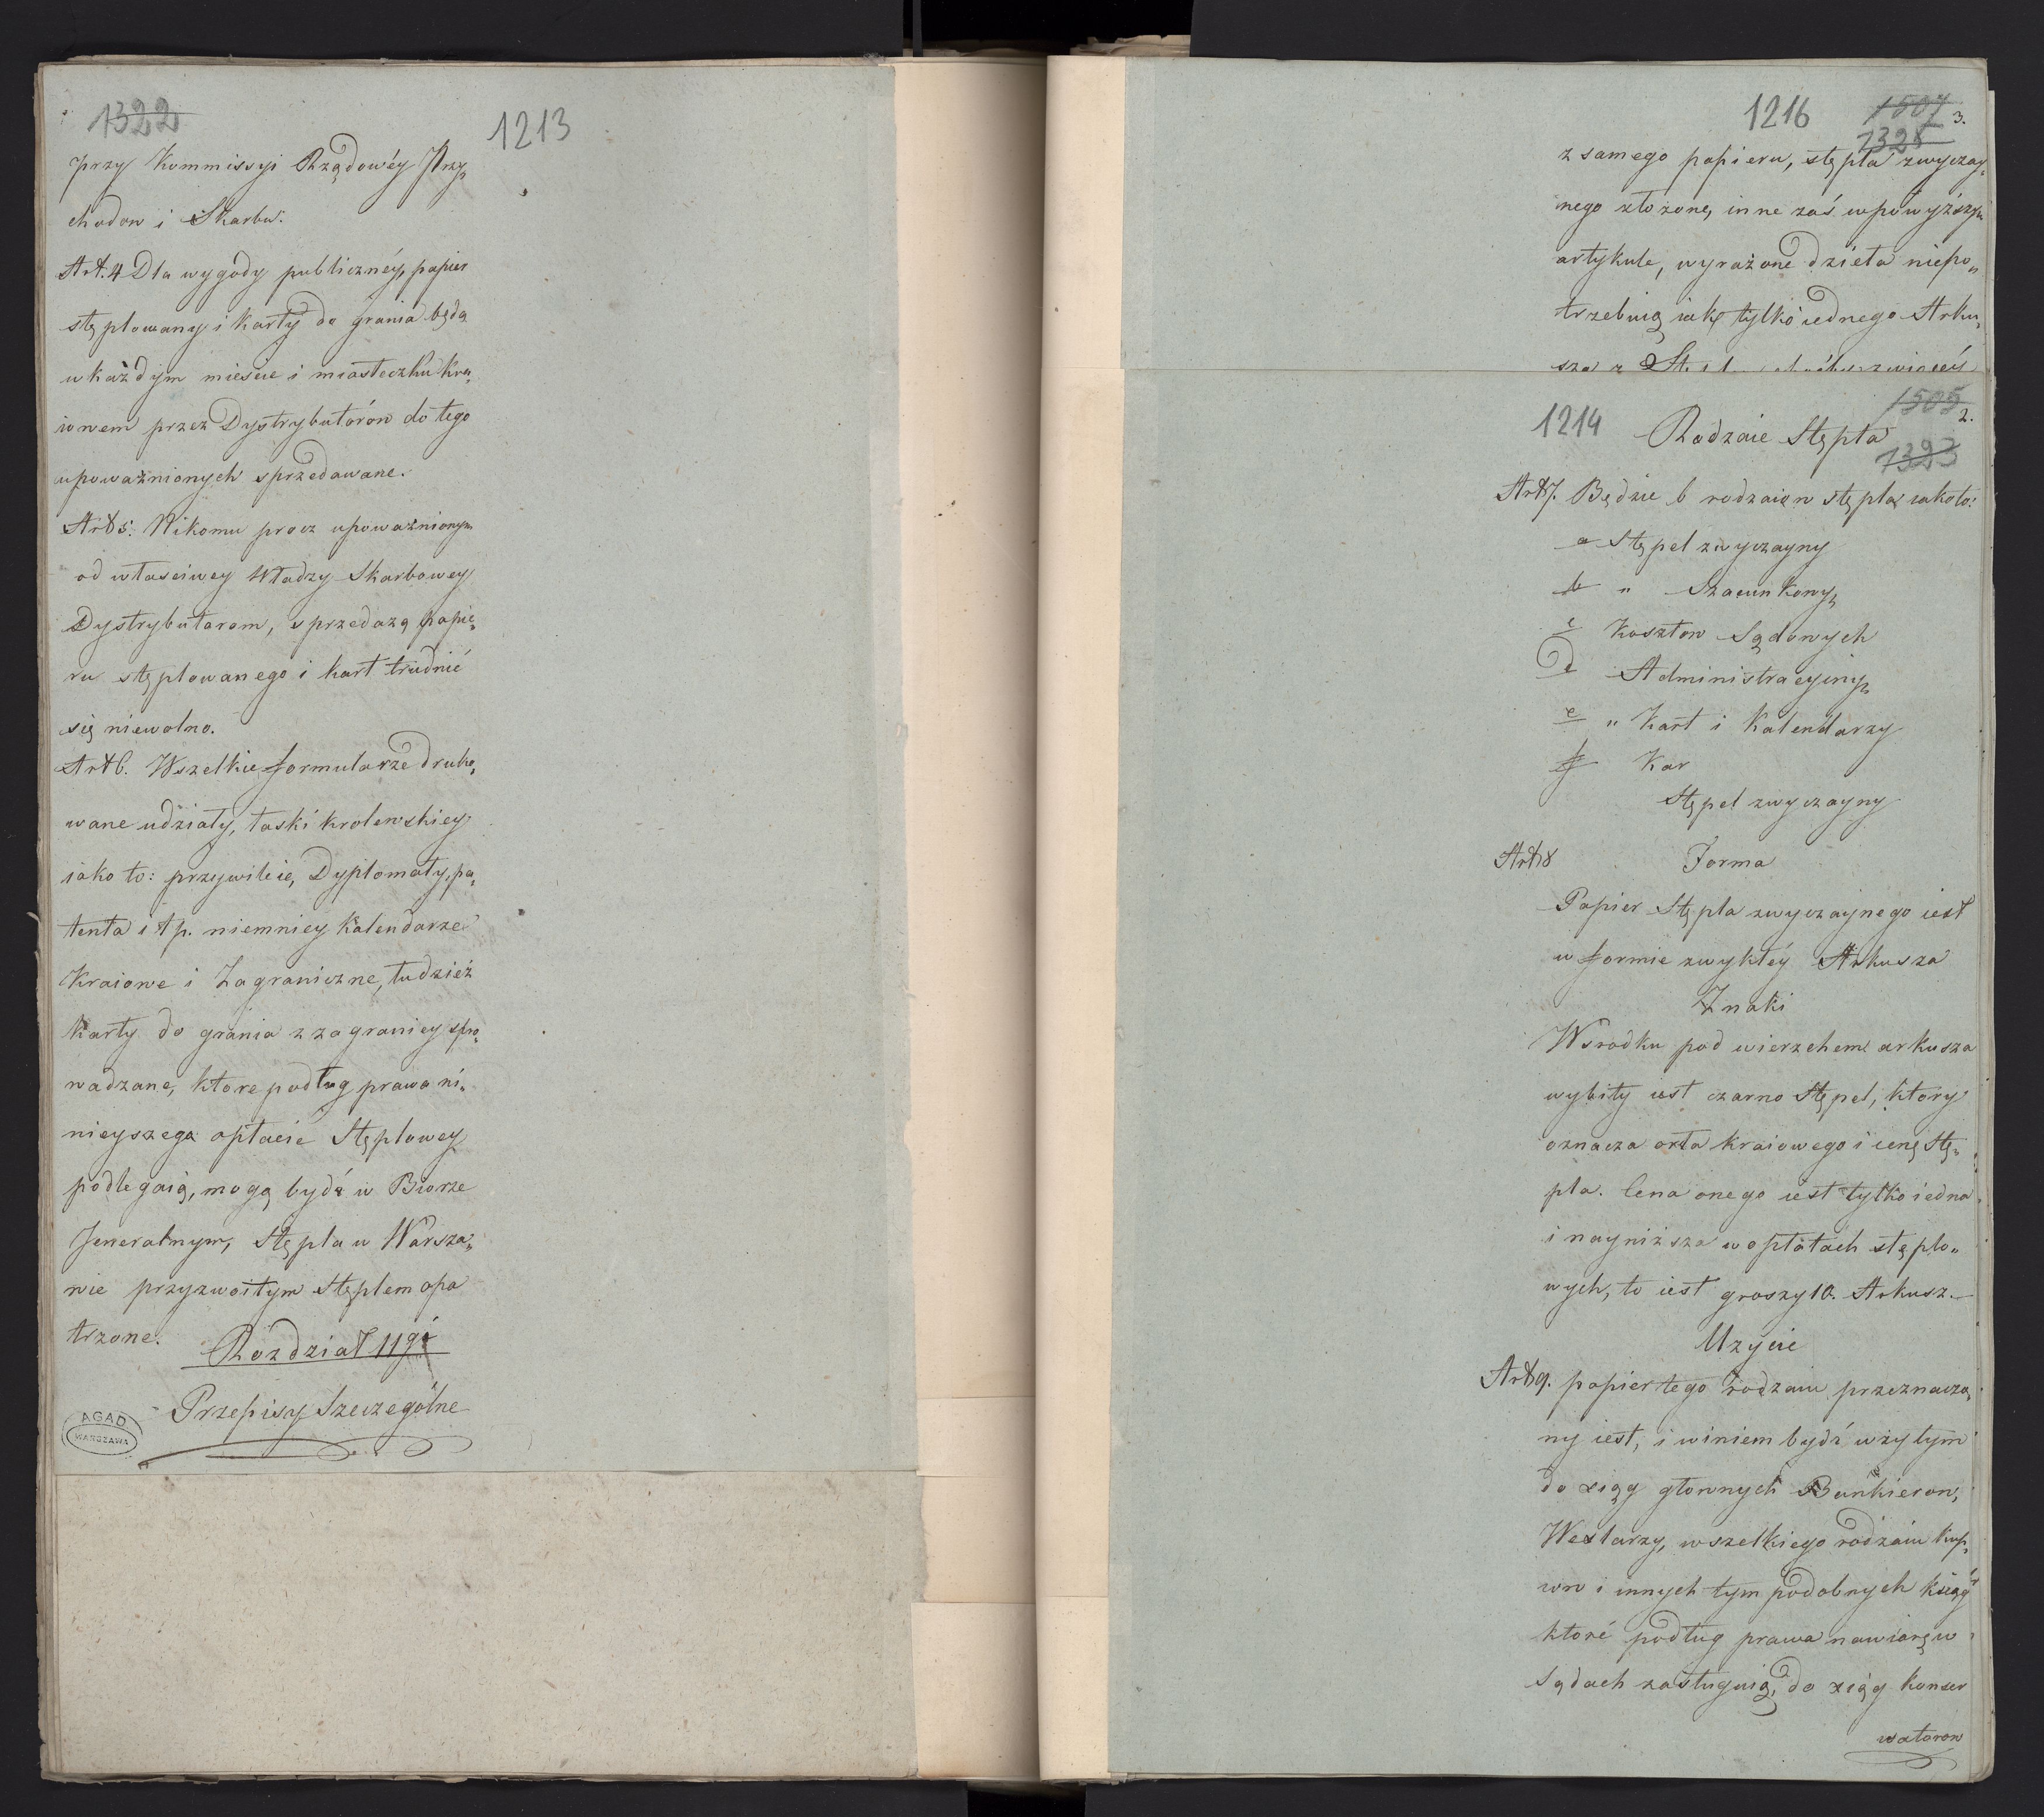 1322
1213
przy Kommissyi Rządowéy Przy„
chodow i Skarbu.
Art. 4 Dla wygody publicznéy, papier
stęplowany i karty do grania będą
w każdym miescie i miasteczku Kra„
iowem przez Dystrybutórow do tego
upoważnionych sprzedawane.
Art 5. Nikomu procz upoważnionym
od własciwey Władzy Skarbowey
Dystrybutorom, sprzedażą papie„
ru stęplowanego i kart trudnić
się niewolno.
Art 6. Wszelkie formularze druko„
wane udziały, łaski krolewskiey
iako to: przywileie, Dyplomaty, pa„
tenta i t p. niemniey Kalendarze
Kraiowe i Zagraniczne, tudzież
Karty do grania z zagranicy spro„
wadzane, ktore podług prawa ni„
nieyszego opłacie Stęplowey
podlegaią, mogą bydź w Biorze
Jeneralnym, Stępla w Warsza„
wie przyzwoitym Stęplem opa
trzone.
Rozdział 11gi
Przepisy Szczególne
AGAD
WARSZAWA
1216
1507
3.
1325
z samego papieru, stępla zwyczay„
nego złożone, inne zaś w powyższym
artykule, wyrażone dzieła niepo„
trzebuią iak tylko iednego Arku„
sza z
1505
2.
1214
Rodzaie Stępla
1323
Art 7. Będzie 6 rodzaiow stępla iakoto:
a Stępel zwyczayny
b " Szacunkowy
c Kosztow Sądowych
d Administracyiny
e " Kart i Kalendarzy
f Kar
Stępel zwyczayny
Art 8 Forma
Papier Stępla zwyczaynego iest
w formie zwykłéy Arkusza
Znaki
Wsrodku pod wierzchem arkusza
wybity iest czarno Stępel, ktory
oznacza orła kraiowego i cenę Stę„
pla. Cena onego iest tylko iedna
i nayniższa w opłatach stęplo„
wych, to iest groszy 10. Arkusz.
Uzycie
Art 9. papier tego rodzaiu przeznaczo„
ny iest, i winiem bydź użytym
do xiąg głownych Bankierow,
Wexlarzy, wszelkiego rodzaiu kup„
cow i innych tym podobnych Ksiąg
ktoré podług prawa na wiarę w
Sądach zasługuią, do xiąg konser
watorow